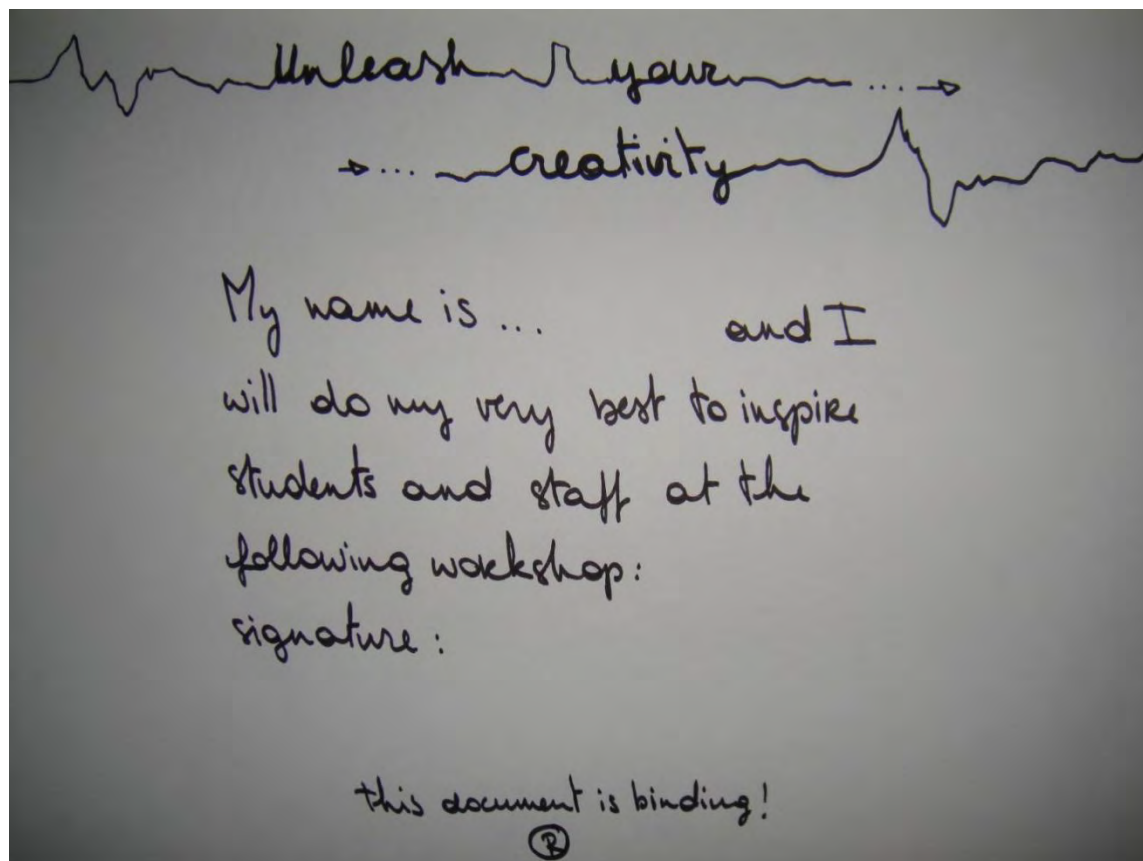 Unleash your ...
... creativity
My name is ... and I
will do my very best to inspire
students and staff at the
following workshop:
signature:
this document is binding!
®